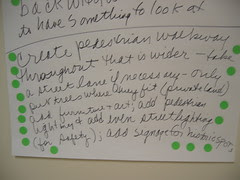 to have something to look at
Create pedestrian walkway
throughout that is wider - take
a street lane if necessary - only
put trees where they fit (private land)
add furniture + art, add pedestrian
lighting + add even street lighting
(for safety); add signage for historic spots